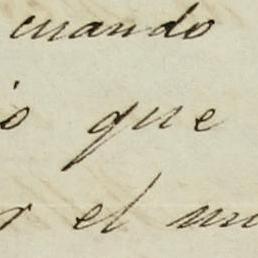 cuando
que
el